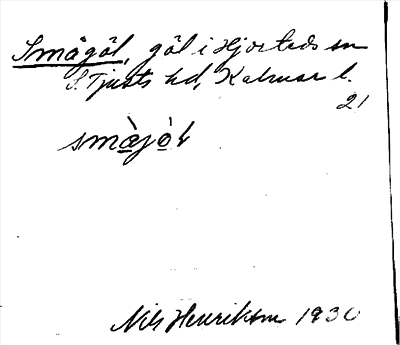 Smågöl, göl i Hjorteds sn
S. Tjusts hd, Kalmar l.
21
smæ̀jò̱l
Nils Henrikson 1930